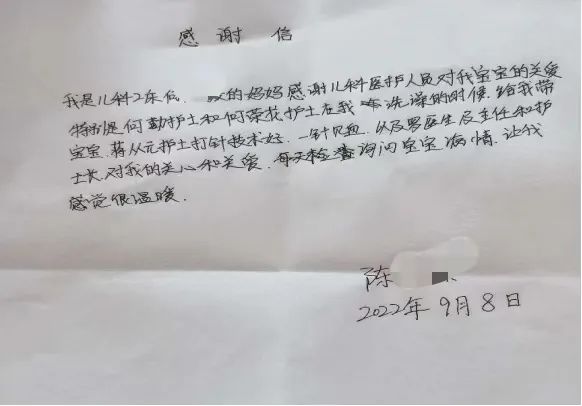 感谢信
我是儿科2床伍 的妈妈感谢儿科医护人员对我宝宝的关爱
特别是何勤护士和何荣花护士在我去洗澡的时候.给我带
宝宝.蒋从元护士打针技术好.一针见血.以及罗医生及主任和护
士长.对我的关心和关爱.每天检查询问宝宝病情.让我
感觉很温暖.
陈
2022年9月8日